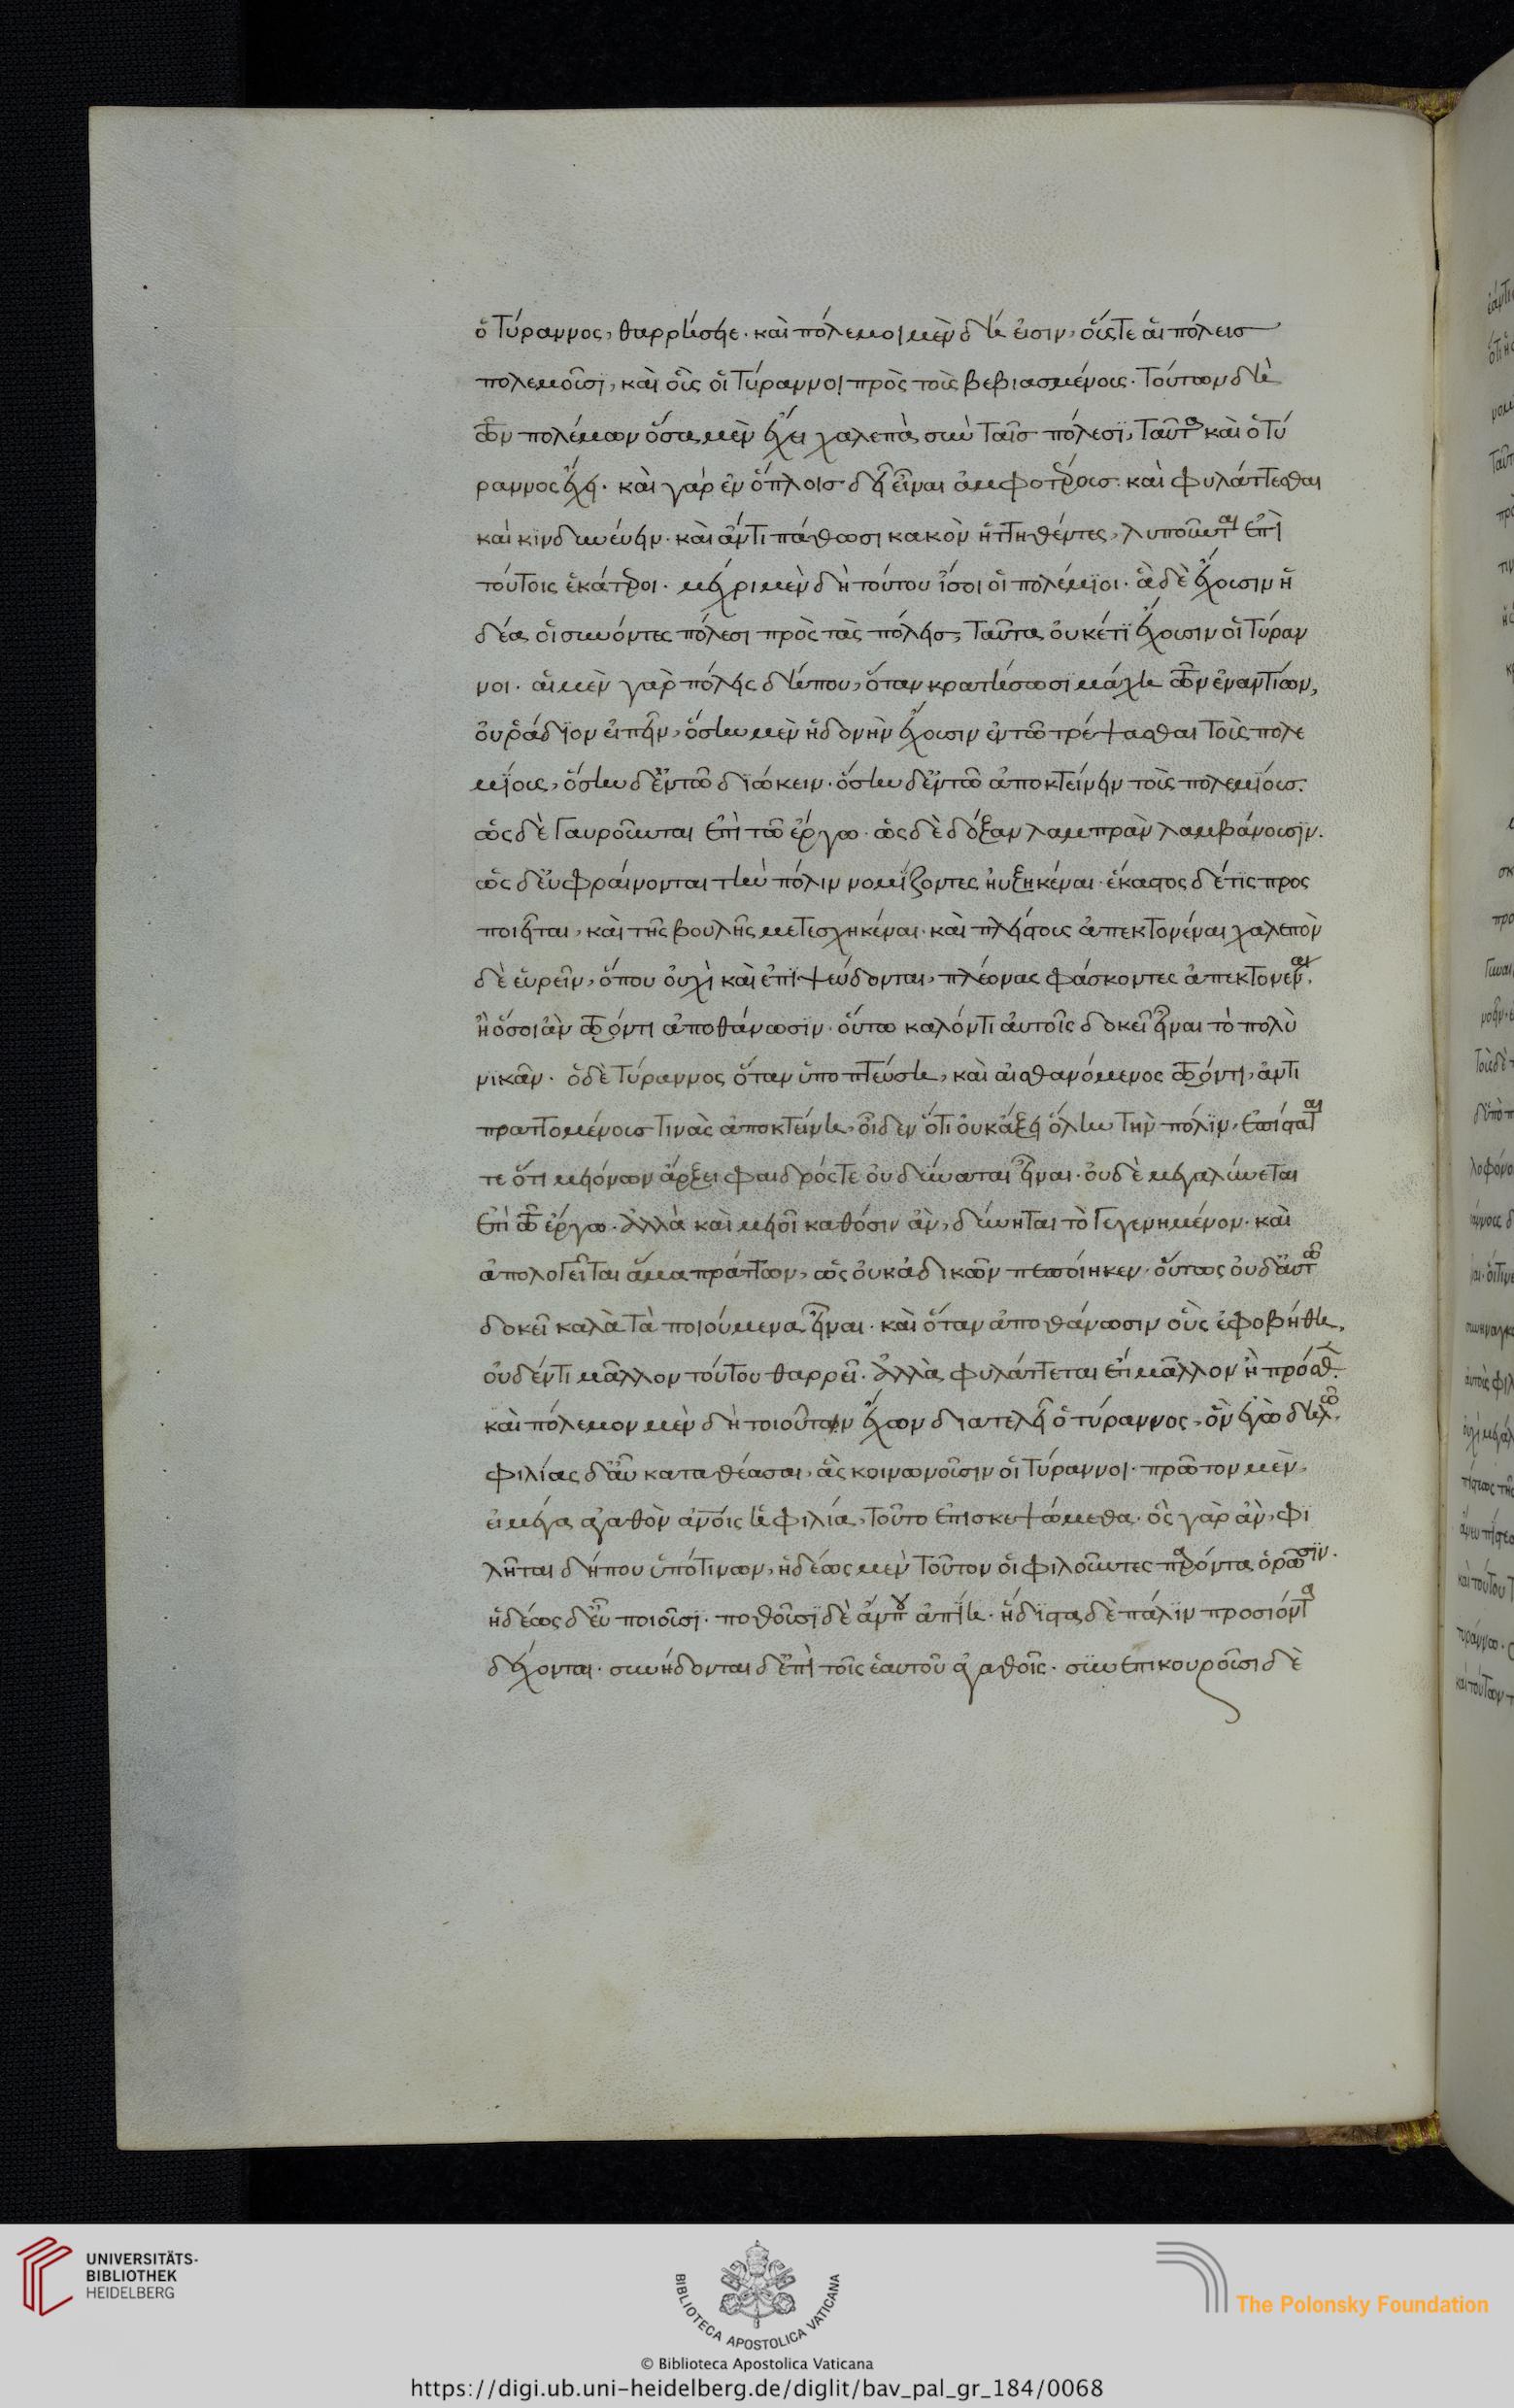 ὁ τύραννος, θαρρήσειε. καὶ πόλεμοι μὲν δή εἰσιν, οὕς τε αἱ πόλεις
πολεμοῦσι, καὶ οὓς οἱ τύραννοι πρὸς τοὺς βεβιασμένους. τούτων δὴ
τῶν πολέμων ὅσα μὲν ἔχει χαλεπὰ σὺν ταῖς πόλεσι, ταῦτα καὶ ὁ τύ
ραννος ἔχει. καὶ γὰρ ἐν ὅπλοις δεῖ εἶναι ἀμφοτέροις. καὶ φυλάττεσθαι
καὶ κινδυνεύειν. καὶ ἄν τι πάθωσι κακὸν ἡττηθέντες, λυποῦνται ἐπὶ
τούτοις ἑκάτεροι. μέχρι μὲν δὴ τούτου ἴσοι οἱ πολέμιοι. ἃ δὲ ἔχουσιν ἡ
δέα οἱ συνόντες πόλεσι πρὸς τὰς πόλεις, ταῦτα οὐκέτι ἔχουσιν οἱ τύραν
νοι. αἱ μὲν γὰρ πόλεις δήπου, ὅταν κρατήσωσι μάχῃ τῶν ἐναντίων,
οὐ ῥάδιον εἰπεῖν, ὅσην μὲν ἡδονὴν ἔχουσιν ἐν τῶ τρέψασθαι τοὺς πολε
μίους, ὅσην δ' ἐν τῶ διώκειν. ὅσην δ' ἐν τῶ ἀποκτείνειν τοὺς πολεμίους.
ὡς δὲ γαυροῦνται ἐπὶ τῶ ἔργω. ὡς δὲ δόξαν λαμπρὰν λαμβάνουσιν.
ὡς δ' εὐφραίνονται τὴν πόλιν νομίζοντες ηὐξηκέναι. ἕκαστος δέ τις προς
ποιεῖται, καὶ τῆς βουλῆς μετεσχηκέναι. καὶ πλείστους ἀπεκτονέναι χαλεπὸν
δὲ εὑρεῖν, ὅπου οὐχὶ καὶ ἐπιψεύδονται, πλέονας φάσκοντες ἀπεκτονέναι.
ἢ ὅσοι ἂν τῶ ὄντι ἀποθάνωσιν. οὕτω καλόν τι αὐτοῖς δοκεῖ εἶναι τὸ πολὺ
νικᾶν. ὁ δὲ τύραννος ὅταν ὑποπτεύσῃ, καὶ αἰσθανόμενος τῶ ὄντι, ἀντι
πραττομένους τινὰς ἀποκτείνῃ, οἶδεν ὅτι οὐκ αὔξει ὅλην τὴν πόλιν, ἐπίσταται
τε ὅτι μειόνων ἄρξει φαιδρός τε οὐ δύναται εἶναι. οὐδὲ μεγαλύνεται
ἐπὶ τῶ ἔργω. ἀλλὰ καὶ μειοῖ καθόσον ἂν, δύνηται τὸ γεγενημένον. καὶ
ἀπολογεῖται ἅμα πράττων, ὡς οὐκ ἀδικῶν πεποίηκεν. οὕτως οὐδ' αὐτῶ
δοκεῖ καλὰ τὰ ποιούμενα εἶναι. καὶ ὅταν ἀποθάνωσιν οὓς ἐφοβήθη,
οὐδέν τι μᾶλλον τούτου θαρρεῖ. ἀλλὰ φυλάττεται ἔτι μᾶλλον ἢ πρόσθεν.
καὶ πόλεμον μὲν δὴ τοιοῦτον ἔχων διατελεῖ ὁ τύραννος, ὃν ἐγὼ δηλῶ.
φιλίας δ' αὖ καταθέασαι, ἃς κοινωνοῦσιν οἱ τύραννοι. πρῶτον μὲν,
εἰ μέγα ἀγαθὸν ἀν̅οις ἡ φιλία, τοῦτο ἐπισκεψώμεθα. ὃς γὰρ ἂν, φι
λῆται δήπου ὑπό τινων, ἡδέως μὲν τοῦτον οἱ φιλοῦντες παρόντα ὁρῶσιν.
ἡδέως δ' εὖ ποιοῦσι. ποθοῦσι δὲ ἄν που ἀπίῃ. ἥδιστα δὲ πάλιν προσιόντα
δέχονται. συνήδονται δ' ἐπὶ τοῖς ἑαυτοῦ ἀγαθοῖς. συνεπικουροῦσι δὲ
UNIVERSITÄTS-
BIBLIOTHEK
HEIDELBERG
BIBLIOTECA APOSTOLICA VATICANA
The Polonsky Foundation
© Biblioteca Apostolica Vaticana
https://digi.ub.uni-heidelberg.de/diglit/bav_pal_gr_184/0068